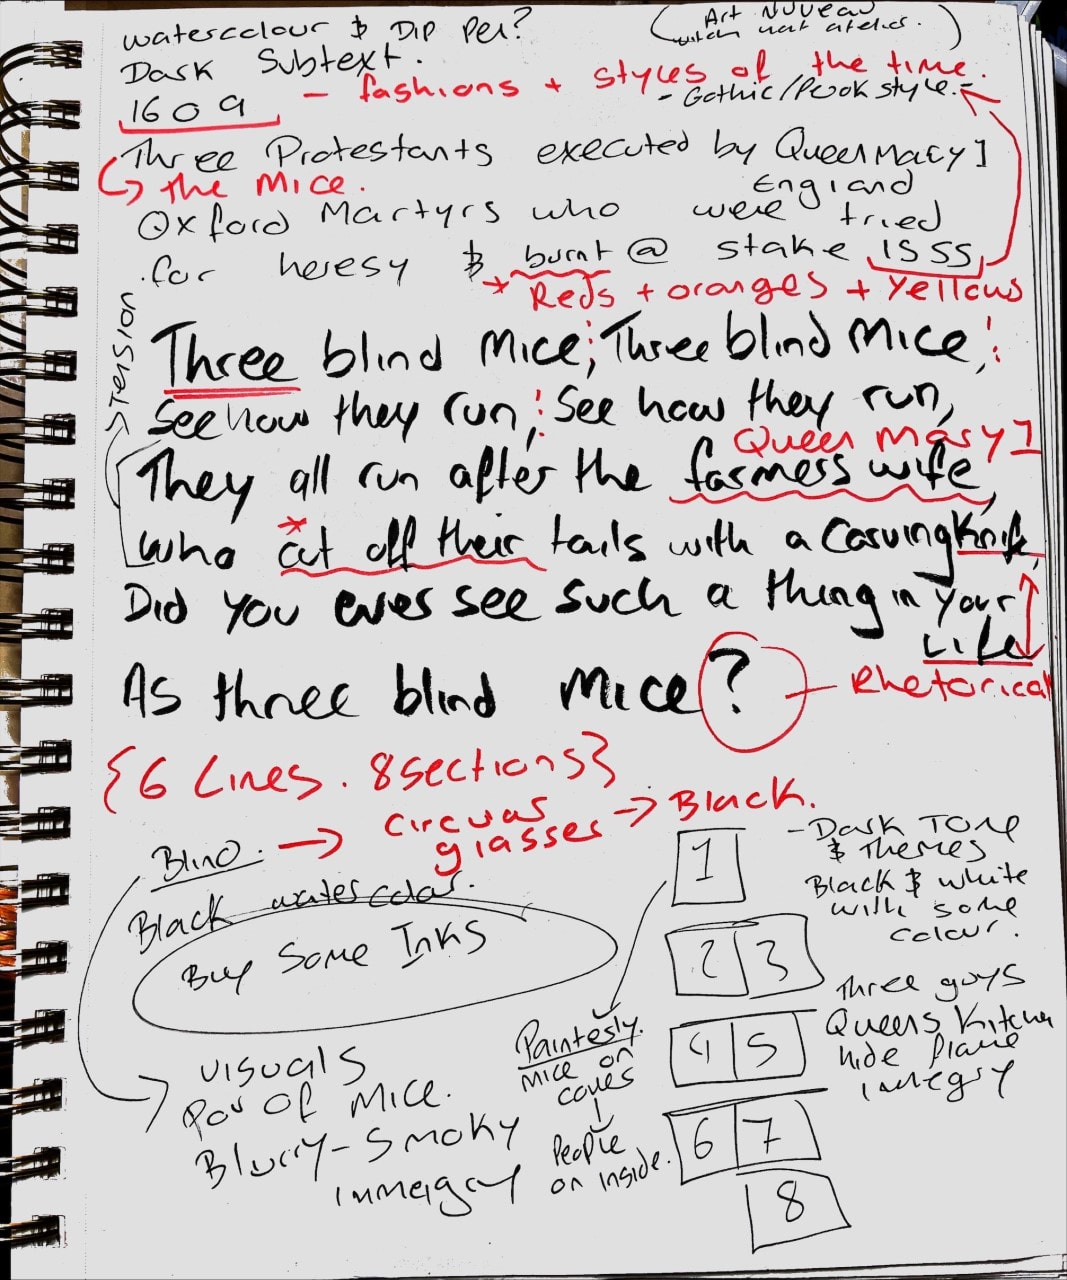 watercolour & Dip Pen?
(Art Nuveau
witch hat atelier.)
Dark Subtext.
1609 - fashions + styles of the time.
- Gothic/Pook style.-
Three Protestants executed by Queen Mary 1
↳ the Mice.
England
Oxford Martyrs who were tried
for heresy & burnt @ stake 1555
* Reds + oranges + yellows
> Tension
Three blind Mice; Three blind Mice;!
See how they run,! See how they run,
Queen Mary 1
They all run after the farmers wife,
*
who cut off their tails with a Carving Knife,
Did you ever see such a thing in your
Life
As three blind mice? - Rhetorical
{6 Lines. 8 sections}
Blind. → circular glasses → Black.
Black watercolour.
Buy Some Inks
visuals
Pov of Mice.
Blurry-Smoky
immeigry
Painterly.
mice on
cover
↓
People
on inside.
1
2 3
4 5
6 7
8
- Dark Tone
& Themes
Black & white
with some
colour.
Three guys
Queens Kitchen
hide flame
immegry